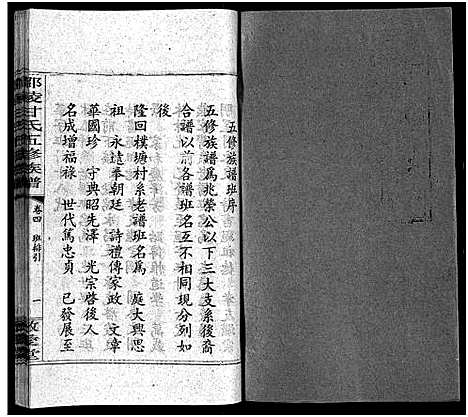 五修族譜班序
五修族譜爲兆榮公以下三大支系後裔
合譜以前各譜班名互不相同現分列如
後
隆回樸塘村系老譜班名爲 庭大興思
祖 永遠奉朝廷 詩禮傳家政 文章
華國珍 守典昭先澤 光宗啓後人
名成增福祿 世代篤忠貞 已發展至
邵陵甘氏五修族譜
卷四 班排引
一
敦孝堂